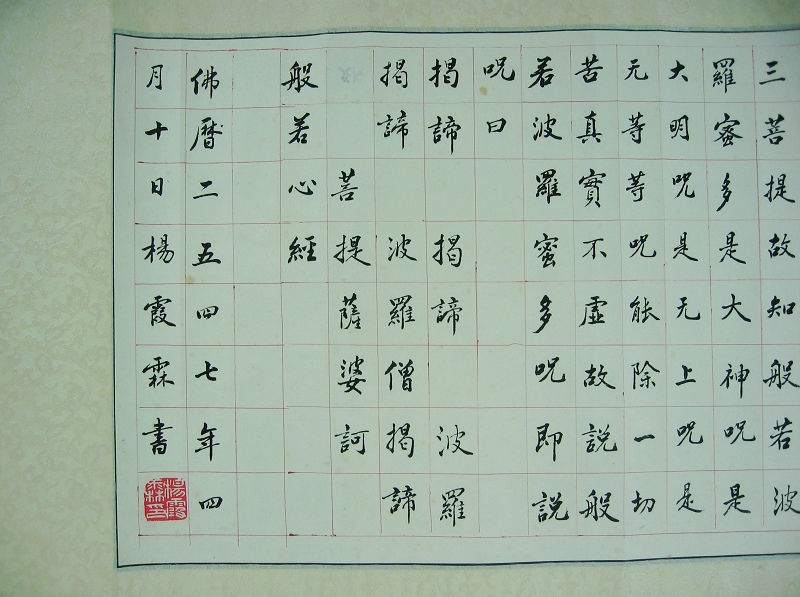 三菩提故知般若波
羅蜜多是大神呪是
大明呪是无上呪是
无等等呪能除一切
苦真實不虛故說般
若波羅蜜多呪即說
呪曰
揭諦 揭諦 波羅
揭諦 波羅僧揭諦
菩提薩婆訶
般若心經
佛曆二五四七年四
月十日楊霞霖書
楊霞霖印